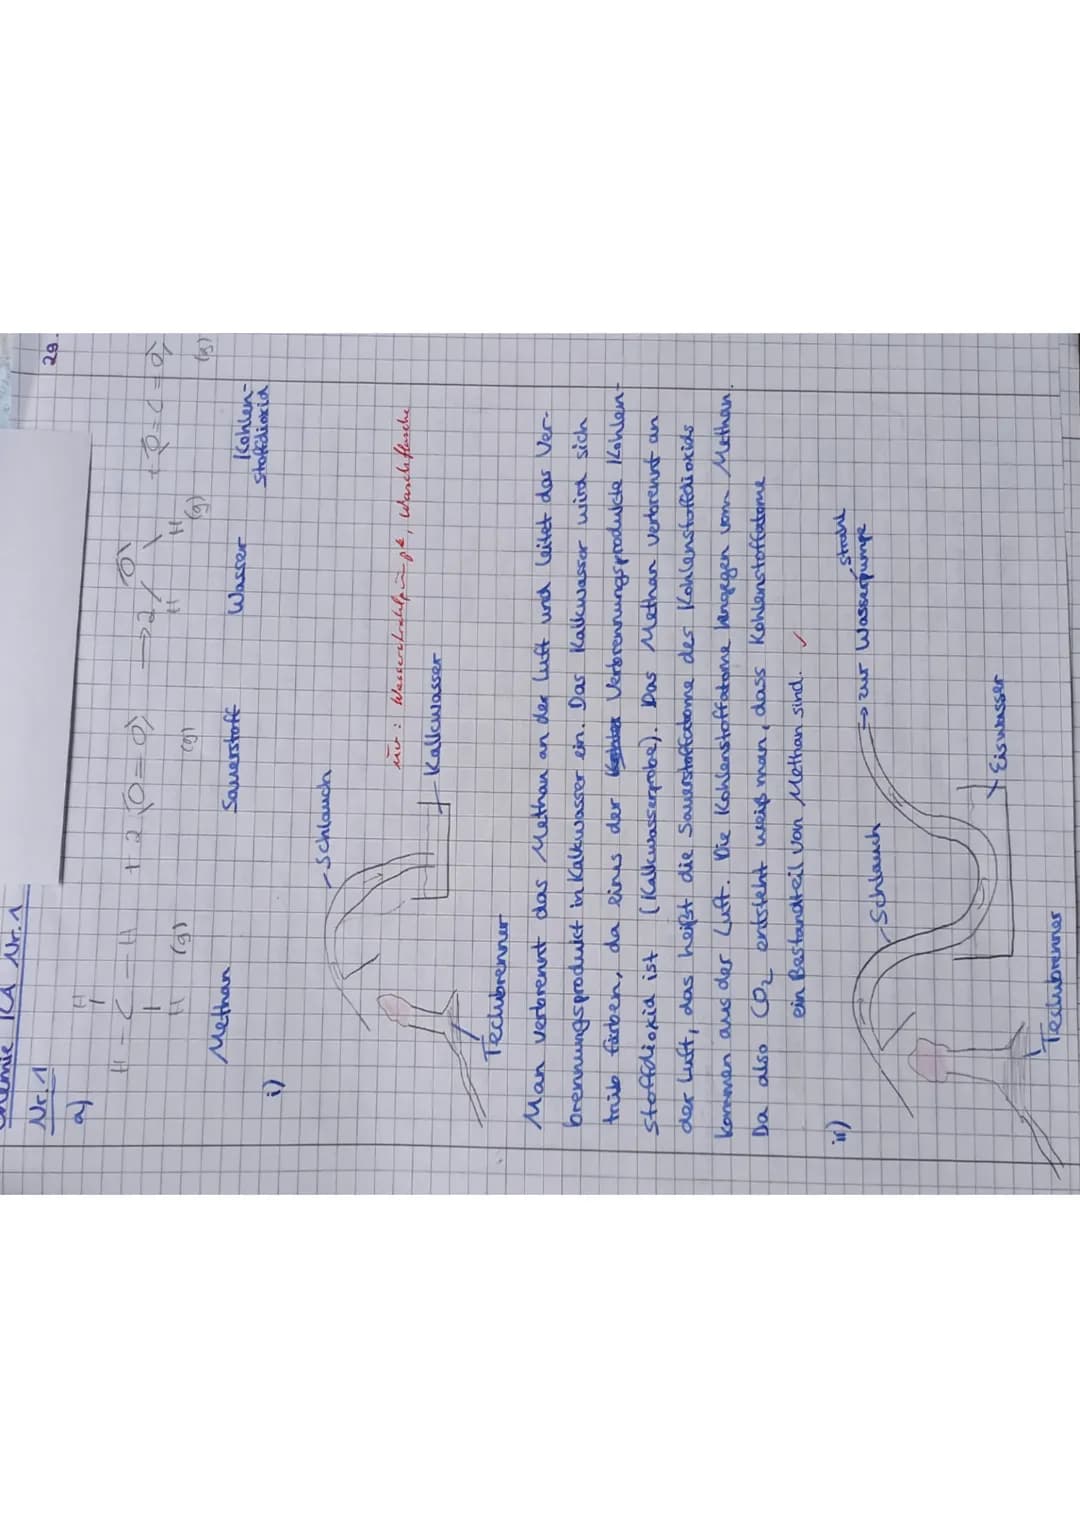 Chemie KA Nr. 1
29.
Nr. 1
a)
H
H - C - H + 2 O = O → 2 O + O = C = O
H H
H (g) (g) (g) (g)
Methan Sauerstoff Wasser Kohlen-
stoffdioxid
i)
Schlauch
Wasserstrahlpumpe, Waschflasche
Kalkwasser
Teclubrenner
Man verbrennt das Methan an der Luft und leitet das Ver-
brennungsprodukt in Kalkwasser ein. Das Kalkwasser wird sich
trüb färben, da eines der Verbrennungsprodukte Kohlen-
stoffdioxid ist (Kalkwasserprobe). Das Methan verbrennt an
der Luft, das heißt die Sauerstoffatome des Kohlenstoffdioxids
kommen aus der Luft. Die Kohlenstoffatome hingegen vom Methan.
Da also CO₂ entsteht weiß man, dass Kohlenstoffatome
ein Bestandteil von Methan sind. ✓
ii)
strahl
→ zur Wasserpumpe
Schlauch
Eiswasser
Teclubrenner